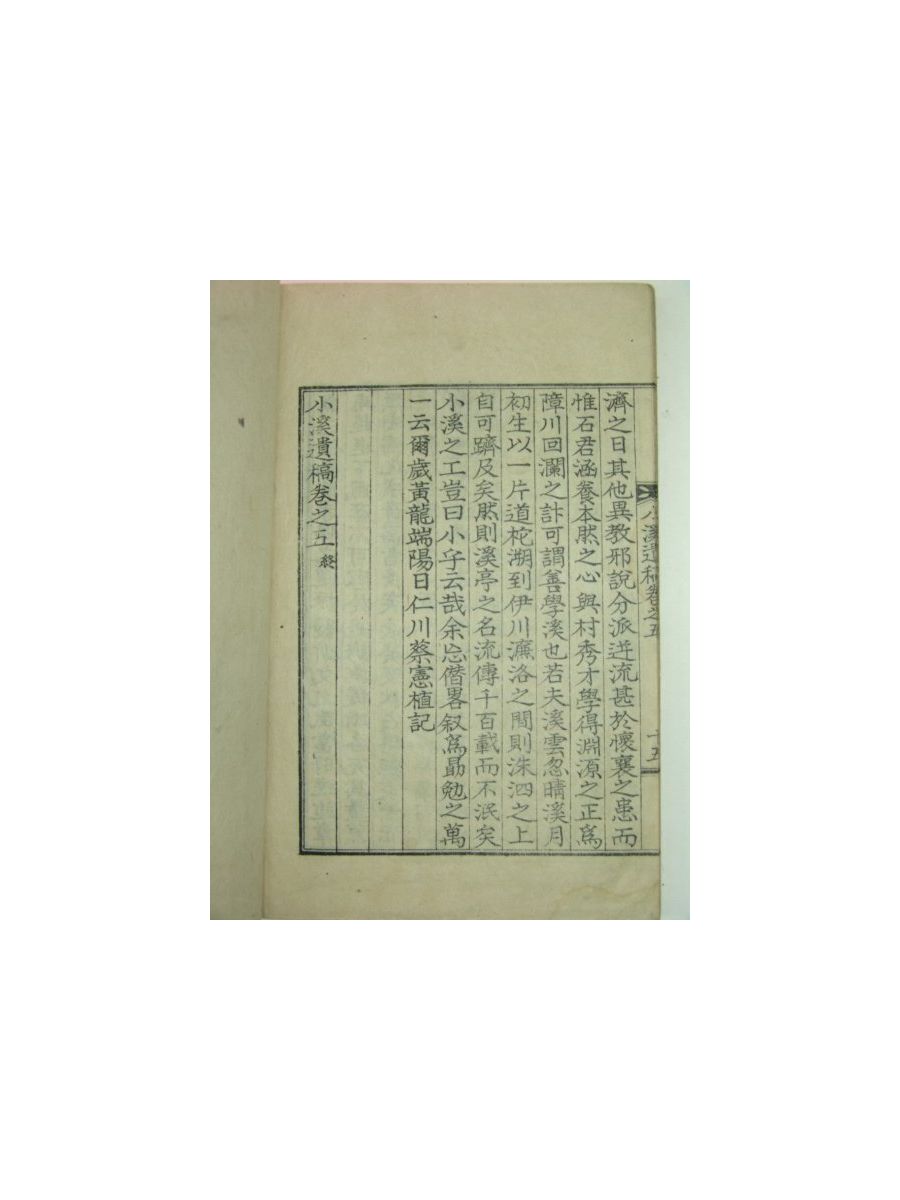 小溪遺稿卷之五
十五
濟之日其他異教邪說分派迸流甚於懷襄之患而
惟石君涵養本然之心與村秀才學得淵源之正爲
障川回瀾之計可謂善學溪也若夫溪雲忽晴溪月
初生以一片道柁溯到伊川濂洛之間則洙泗之上
自可躋及矣然則溪亭之名流傳千百載而不泯矣
小溪之工豈曰小乎云哉余忘僭畧叙爲勗勉之萬
一云爾歲黃龍端陽日仁川蔡憲植記
小溪遺稿卷之五 終